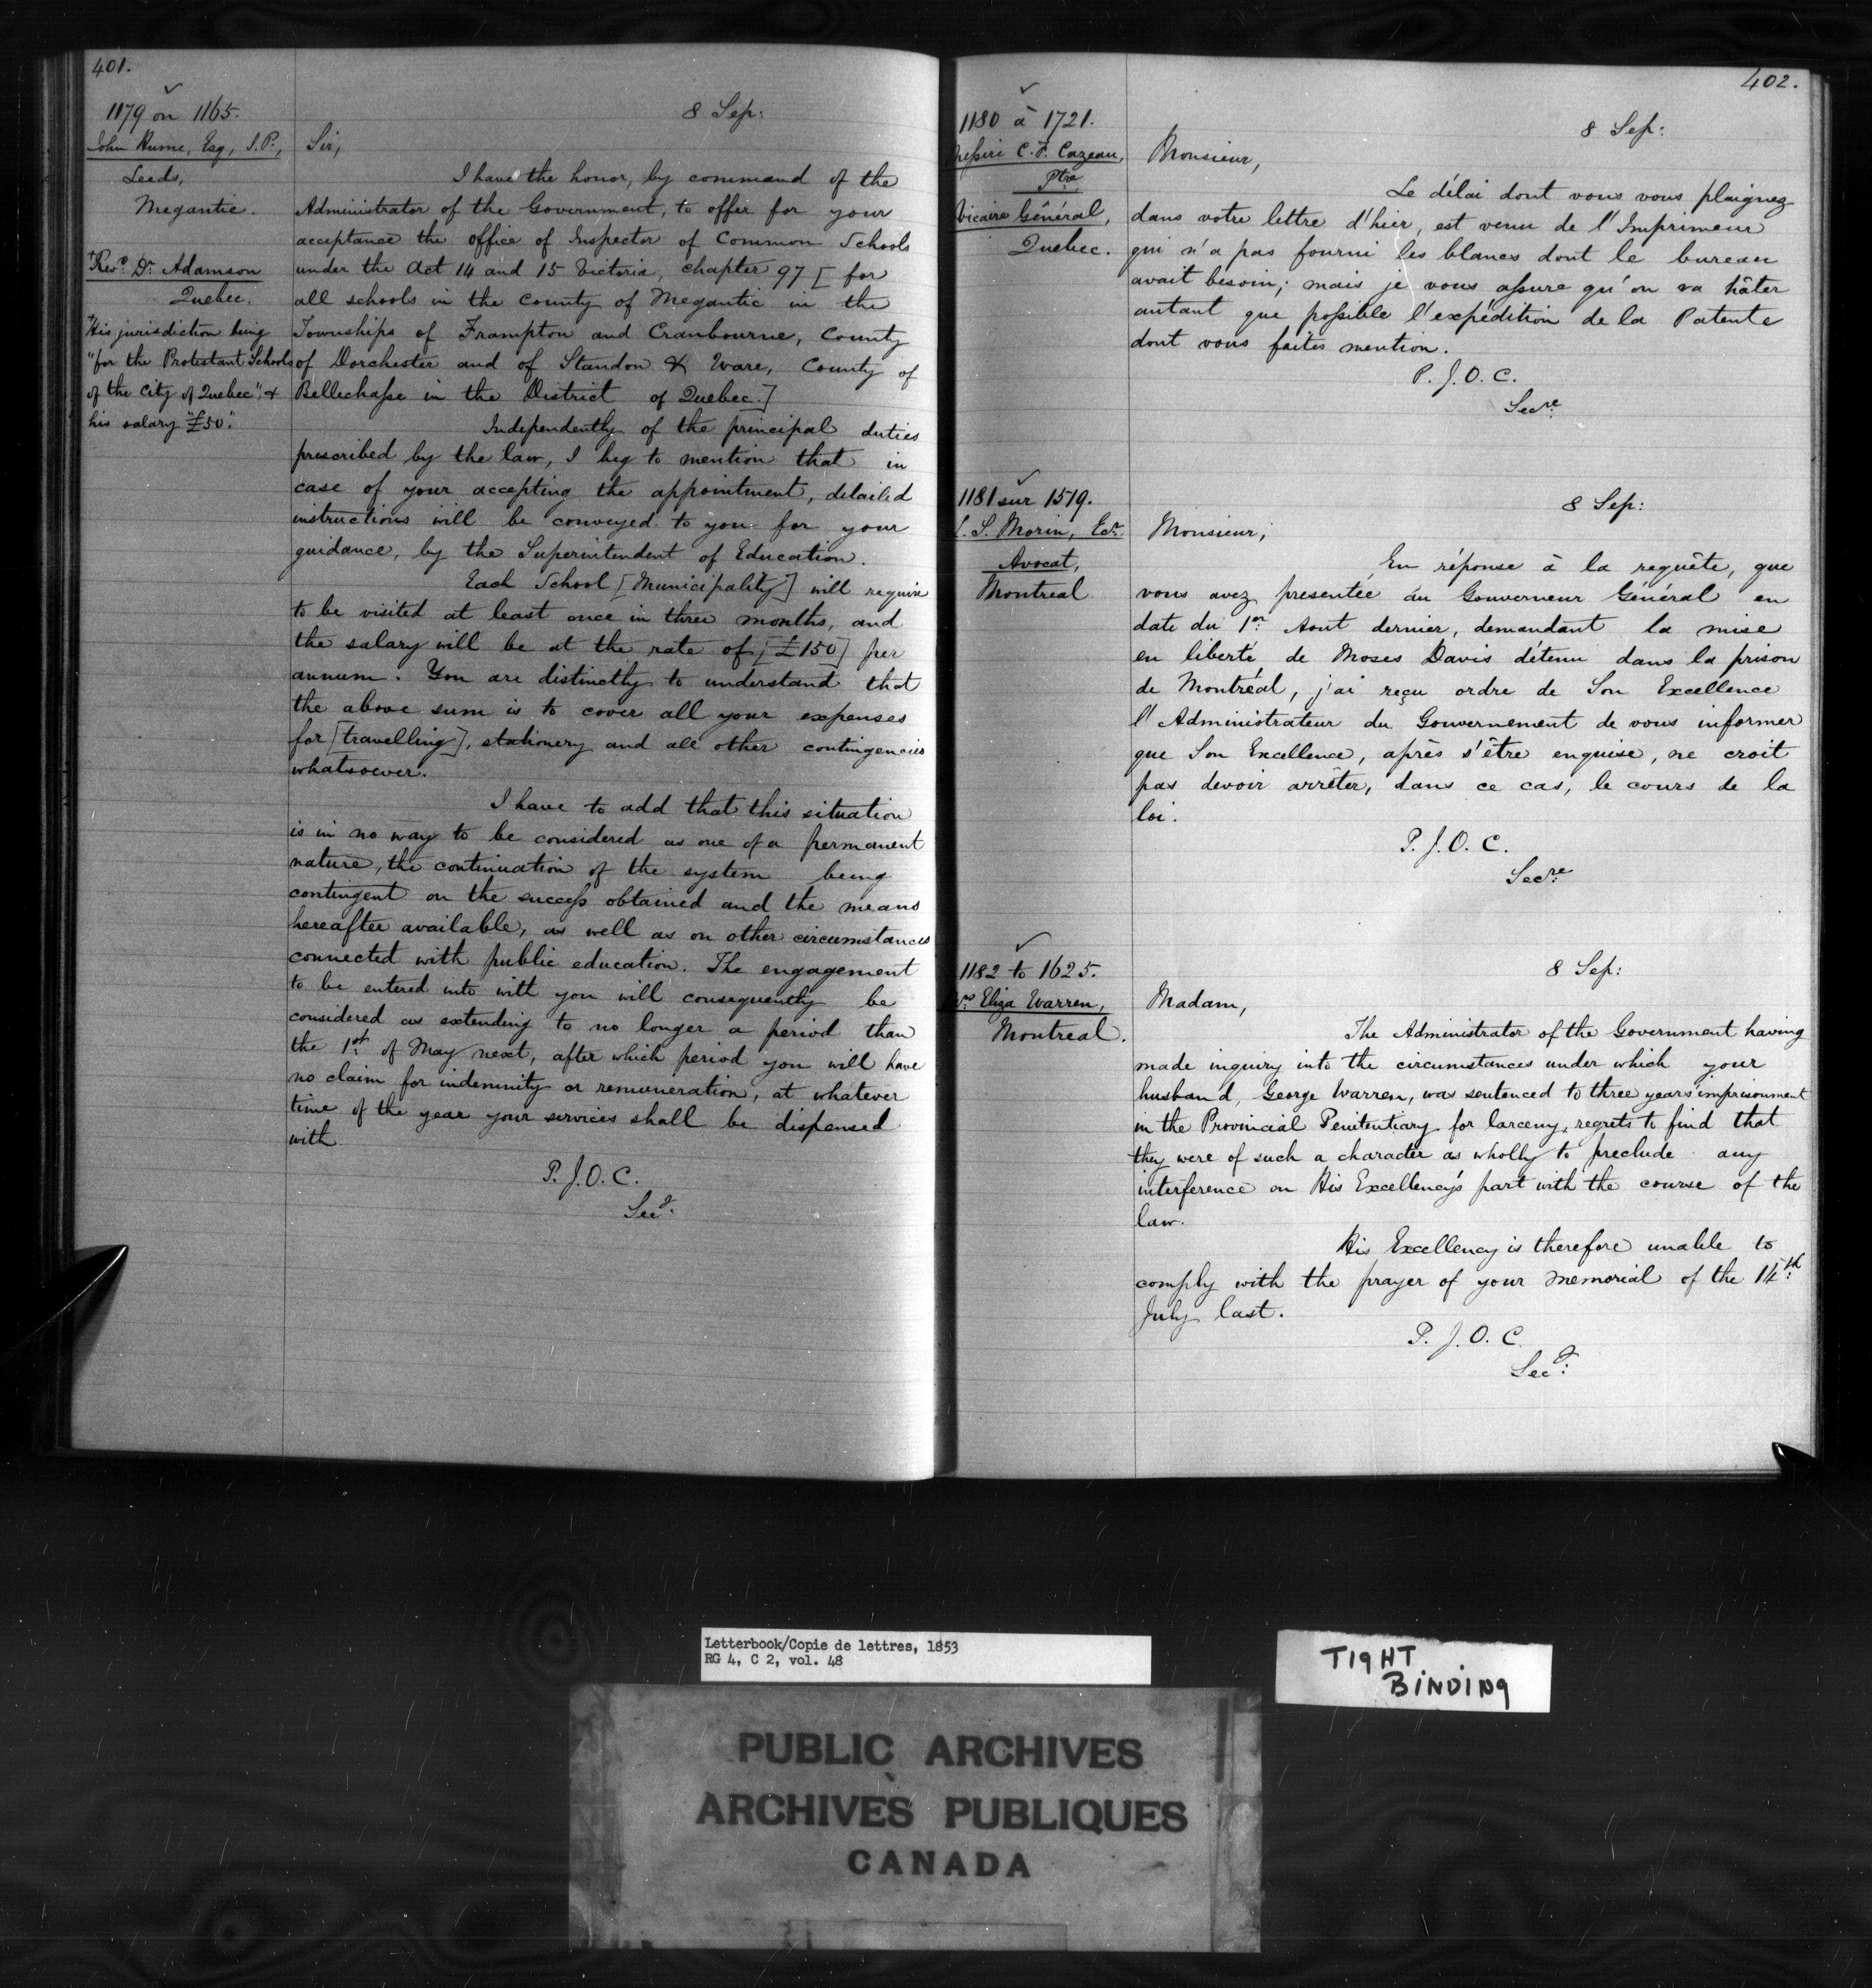 401.
1179 on 1165.
John Hume, Esq, J.P.,
Leeds,
Megantic.
Revd. Dr. Adamson
Quebec.
"His jurisdiction being
"for the Protestant Schools
of the City of Quebec", &
his salary "£50".
8 Sep:
Sir,
I have the honor, by command of the
Administrator of the Government, to offer for your
acceptance the office of Inspector of Common Schools
under the Act 14 and 15 Victoria, chapter 97 [for
all schools in the County of Megantic in the
Townships of Frampton and Cranbourne, County
of Dorchester and of Standon & Ware, County of
Bellechasse in the District of Quebec.]
Independently of the principal duties
prescribed by the law, I beg to mention that in
case of your accepting the appointment, detailed
instructions will be conveyed to you for your
guidance, by the Superintendent of Education.
Each School [Municipality] will require
to be visited at least once in three months, and
the salary will be at the rate of [£150] per
annum. You are distinctly to understand that
the above sum is to cover all your expenses
for [travelling], stationery and all other contingencies
whatsoever.
I have to add that this situation
is in no way to be considered as one of a permanent
nature, the continuation of the system being
contingent on the success obtained and the means
hereafter available, as well as on other circumstances
connected with public education. The engagement
to be entered into with you will consequently be
considered as extending to no longer a period than
the 1st. of May next, after which period you will have
no claim for indemnity or remuneration, at whatever
time of the year your services shall be dispensed
with.
P.J.O.C.
Secy.
402.
1180 à 1721.
Messire C. F. Cazeau,
Ptre
Vicaire Général,
Quebec.
8 Sep:
Monsieur,
Le délai dont vous vous plaignez
dans votre lettre d'hier, est venu de l'Imprimeur
qui n'a pas fourni les blancs dont le bureau
avait besoin; mais je vous assure qu'on va hâter
autant que possible l'expédition de la Patente
dont vous faites mention.
P.J.O.C.
Secre.
1181 sur 1519.
L. S. Morin, Ecr.
Avocat,
Montreal
8 Sep:
Monsieur,
En réponse à la requête, que
vous avez presentée au Gouverneur Général en
date du 1er Aout dernier, demandant la mise
en liberté de Moses Davis détenu dans la prison
de Montréal, j'ai reçu ordre de Son Excellence
l'Administrateur du Gouvernement de vous informer
que Son Excellence, après s'être enquise, ne croit
pas devoir arrêter, dans ce cas, le cours de la
loi.
P.J.O.C.
Secre.
1182 to 1625.
Mrs Eliza Warren,
Montreal.
8 Sep:
Madam,
The Administrator of the Government having
made inquiry into the circumstances under which your
husband, George Warren, was sentenced to three years' imprisonment
in the Provincial Penitentiary for larceny, regrets to find that
they were of such a character as wholly to preclude any
interference on His Excellency's part with the course of the
law.
His Excellency is therefore unable to
comply with the prayer of your memorial of the 14th.
July last.
P.J.O.C.
Secy:
Letterbook/Copie de lettres, 1853
RG 4, C 2, vol. 48
TIGHT
BINDING
PUBLIC ARCHIVES
ARCHIVES PUBLIQUES
CANADA